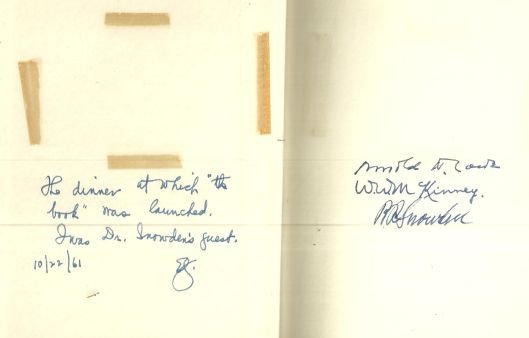 The dinner at which "the
book" was launched.
I was Dr. Snowden's guest.
10/22/61
Arnold D.
Kinney.
Snowden